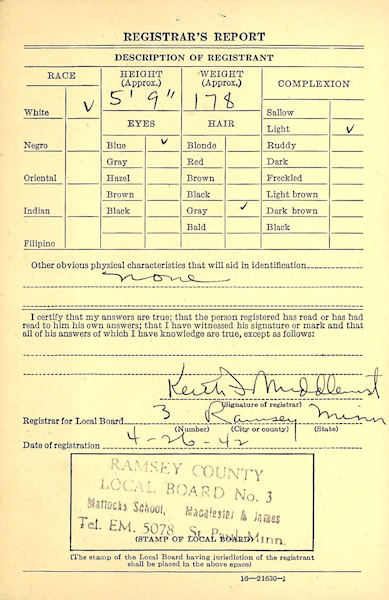 REGISTRAR'S REPORT
DESCRIPTION OF REGISTRANT
RACE
HEIGHT (Approx.)
WEIGHT (Approx.)
COMPLEXION
5' 9"
178
White ✓
EYES
HAIR
Sallow
Light ✓
Negro
Blue ✓
Blonde
Ruddy
Gray
Red
Dark
Oriental
Hazel
Brown
Freckled
Brown
Black
Light brown
Indian
Black
Gray ✓
Dark brown
Bald
Black
Filipino
Other obvious physical characteristics that will aid in identification
none
I certify that my answers are true; that the person registered has read or has had
read to him his own answers; that I have witnessed his signature or mark and that
all of his answers of which I have knowledge are true, except as follows:
Keith
(Signature of registrar)
Registrar for Local Board 3 Ramsey Minn
(Number) (City or county) (State)
Date of registration 4-26-42
RAMSEY COUNTY
LOCAL BOARD No. 3
Mattocks School, Macalester & James
Tel. EM. 5078 St. Paul, Minn.
(STAMP OF LOCAL BOARD)
(The stamp of the Local Board having jurisdiction of the registrant
shall be placed in the above space)
16—21630-1